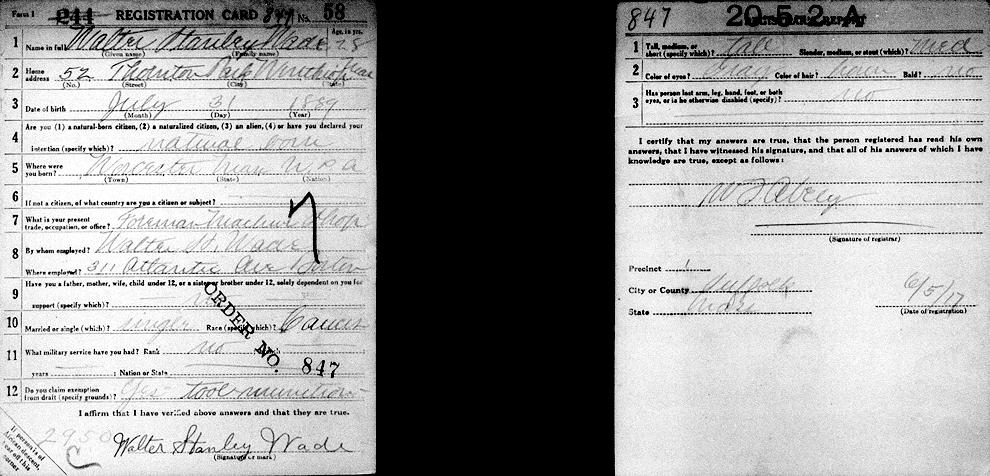 Form 1 244 REGISTRATION CARD 847 No. 58
Age, in yrs.
1 Name in full Walter Stanley Wade 28
(Given name) (Family name)
2 Home address 52 Thornton Park Winthrop Mass
(No.) (Street) (City) (State)
3 Date of birth July 31 1889
(Month) (Day) (Year)
Are you (1) a natural-born citizen, (2) a naturalized citizen, (3) an alien, (4) or have you declared your
4 intention (specify which)? natural born
5 Where were you born? Worcester Mass U.S.A
(Town) (State) (Nation)
6 If not a citizen, of what country are you a citizen or subject?
7 What is your present trade, occupation, or office? Foreman Machine Shop
8 By whom employed? Walter H. Wade
Where employed? 311 Atlantic Ave Boston
9 Have you a father, mother, wife, child under 12, or a sister or brother under 12, solely dependent on you for
support (specify which)? no
10 Married or single (which)? single Race (specify which)? Caucas
11 What military service have you had? Rank no
years ; Nation or State
12 Do you claim exemption from draft (specify grounds)? Yes tool munitions
ORDER NO. 847
I affirm that I have verified above answers and that they are true.
2950 C
Walter Stanley Wade
(Signature or mark)
If person is of
African descent,
tear off this
corner
847 20-5-2-A
REGISTRAR'S REPORT
1 Tall, medium, or short (specify which)? Tall Slender, medium, or stout (which)? Med
2 Color of eyes? Gray Color of hair? brown Bald? no
3 Has person lost arm, leg, hand, foot, or both
eyes, or is he otherwise disabled (specify)? no
I certify that my answers are true, that the person registered has read his own
answers, that I have witnessed his signature, and that all of his answers of which I have
knowledge are true, except as follows:
(Signature of registrar)
Precinct 1
City or County Suffolk
State Mass
6/5/17
(Date of registration)